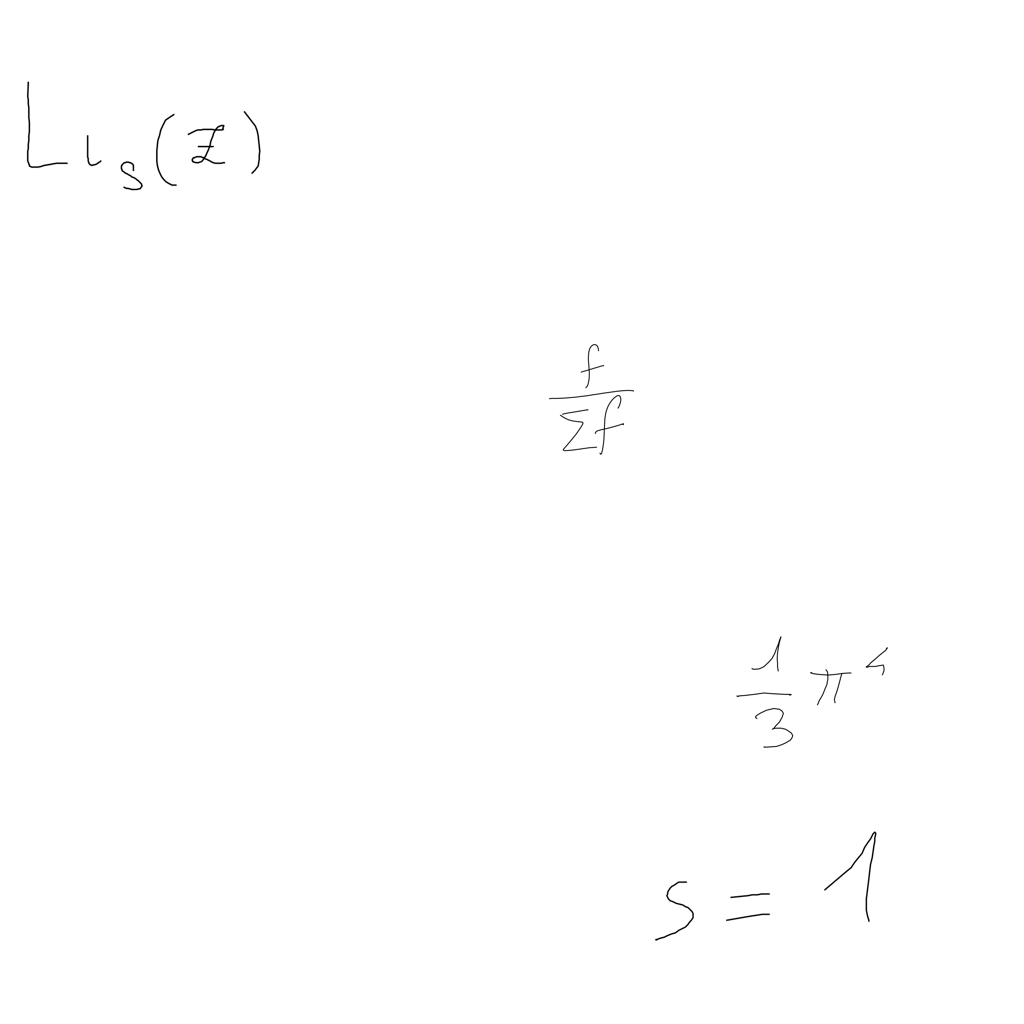 Li_s(z)
f/Σf
1/3 π^4
s = 1